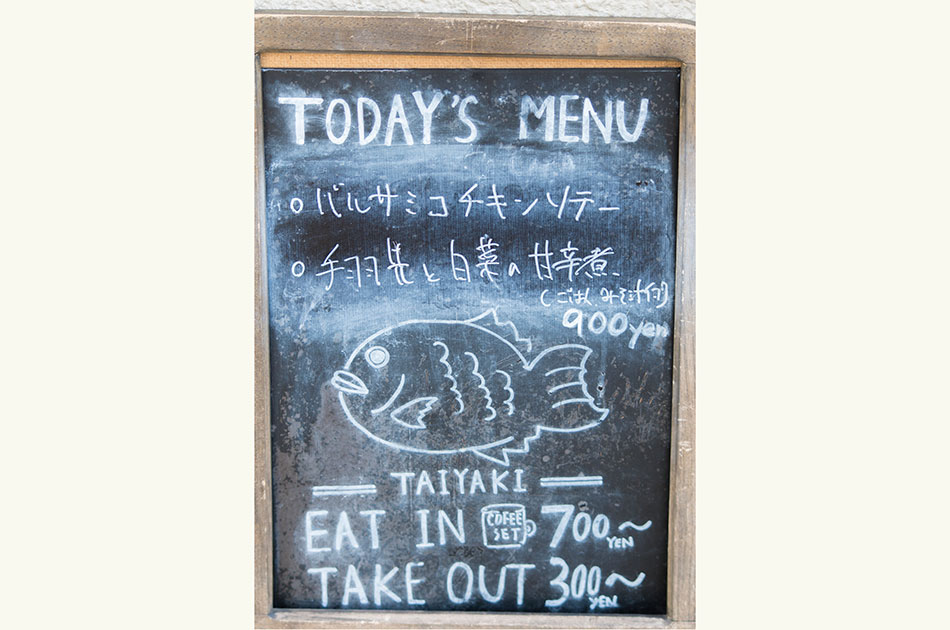 TODAY'S MENU
○ バルサミコチキンソテー
○ 手羽先と白菜の甘辛煮
(ごはん、みそ汁付)
900yen
TAIYAKI
EAT IN COFEE SET 700YEN〜
TAKE OUT 300YEN〜